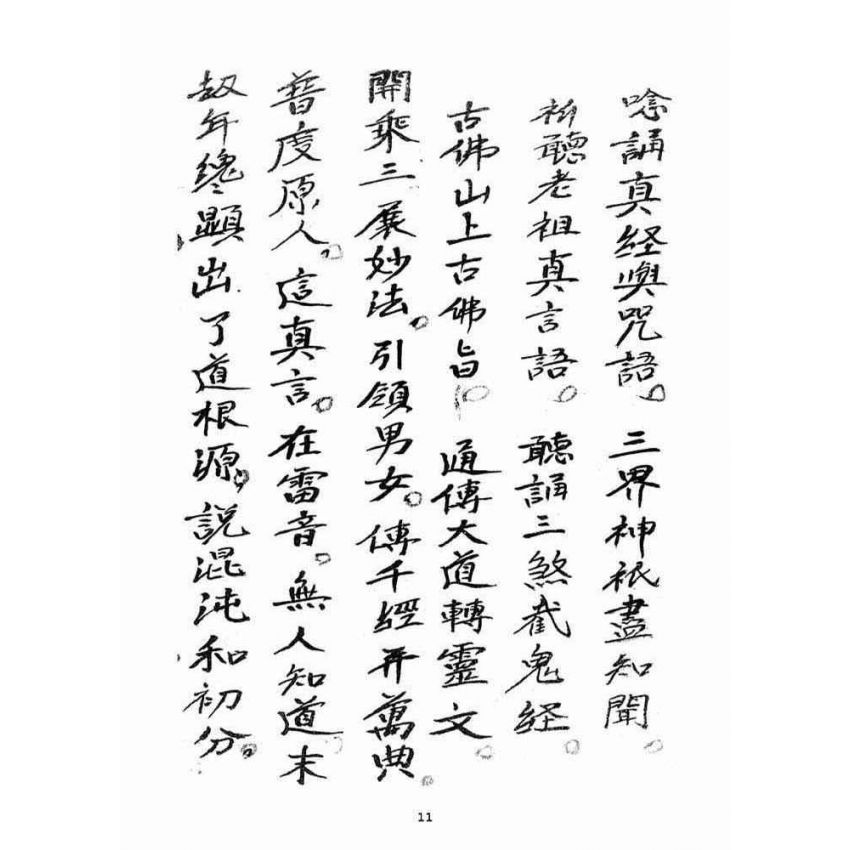 唸誦真経與咒語。三界神祇盡知聞。
衆聽老祖真言語。聽誦三煞截鬼経。
古佛山上古佛旨。通傳大道轉靈文。
開乘三展妙法。引領男女。傳千經并萬典。
普度原人。這真言。在雷音。無人知道末
刼年纔顯出了道根源。說混沌和初分。
11